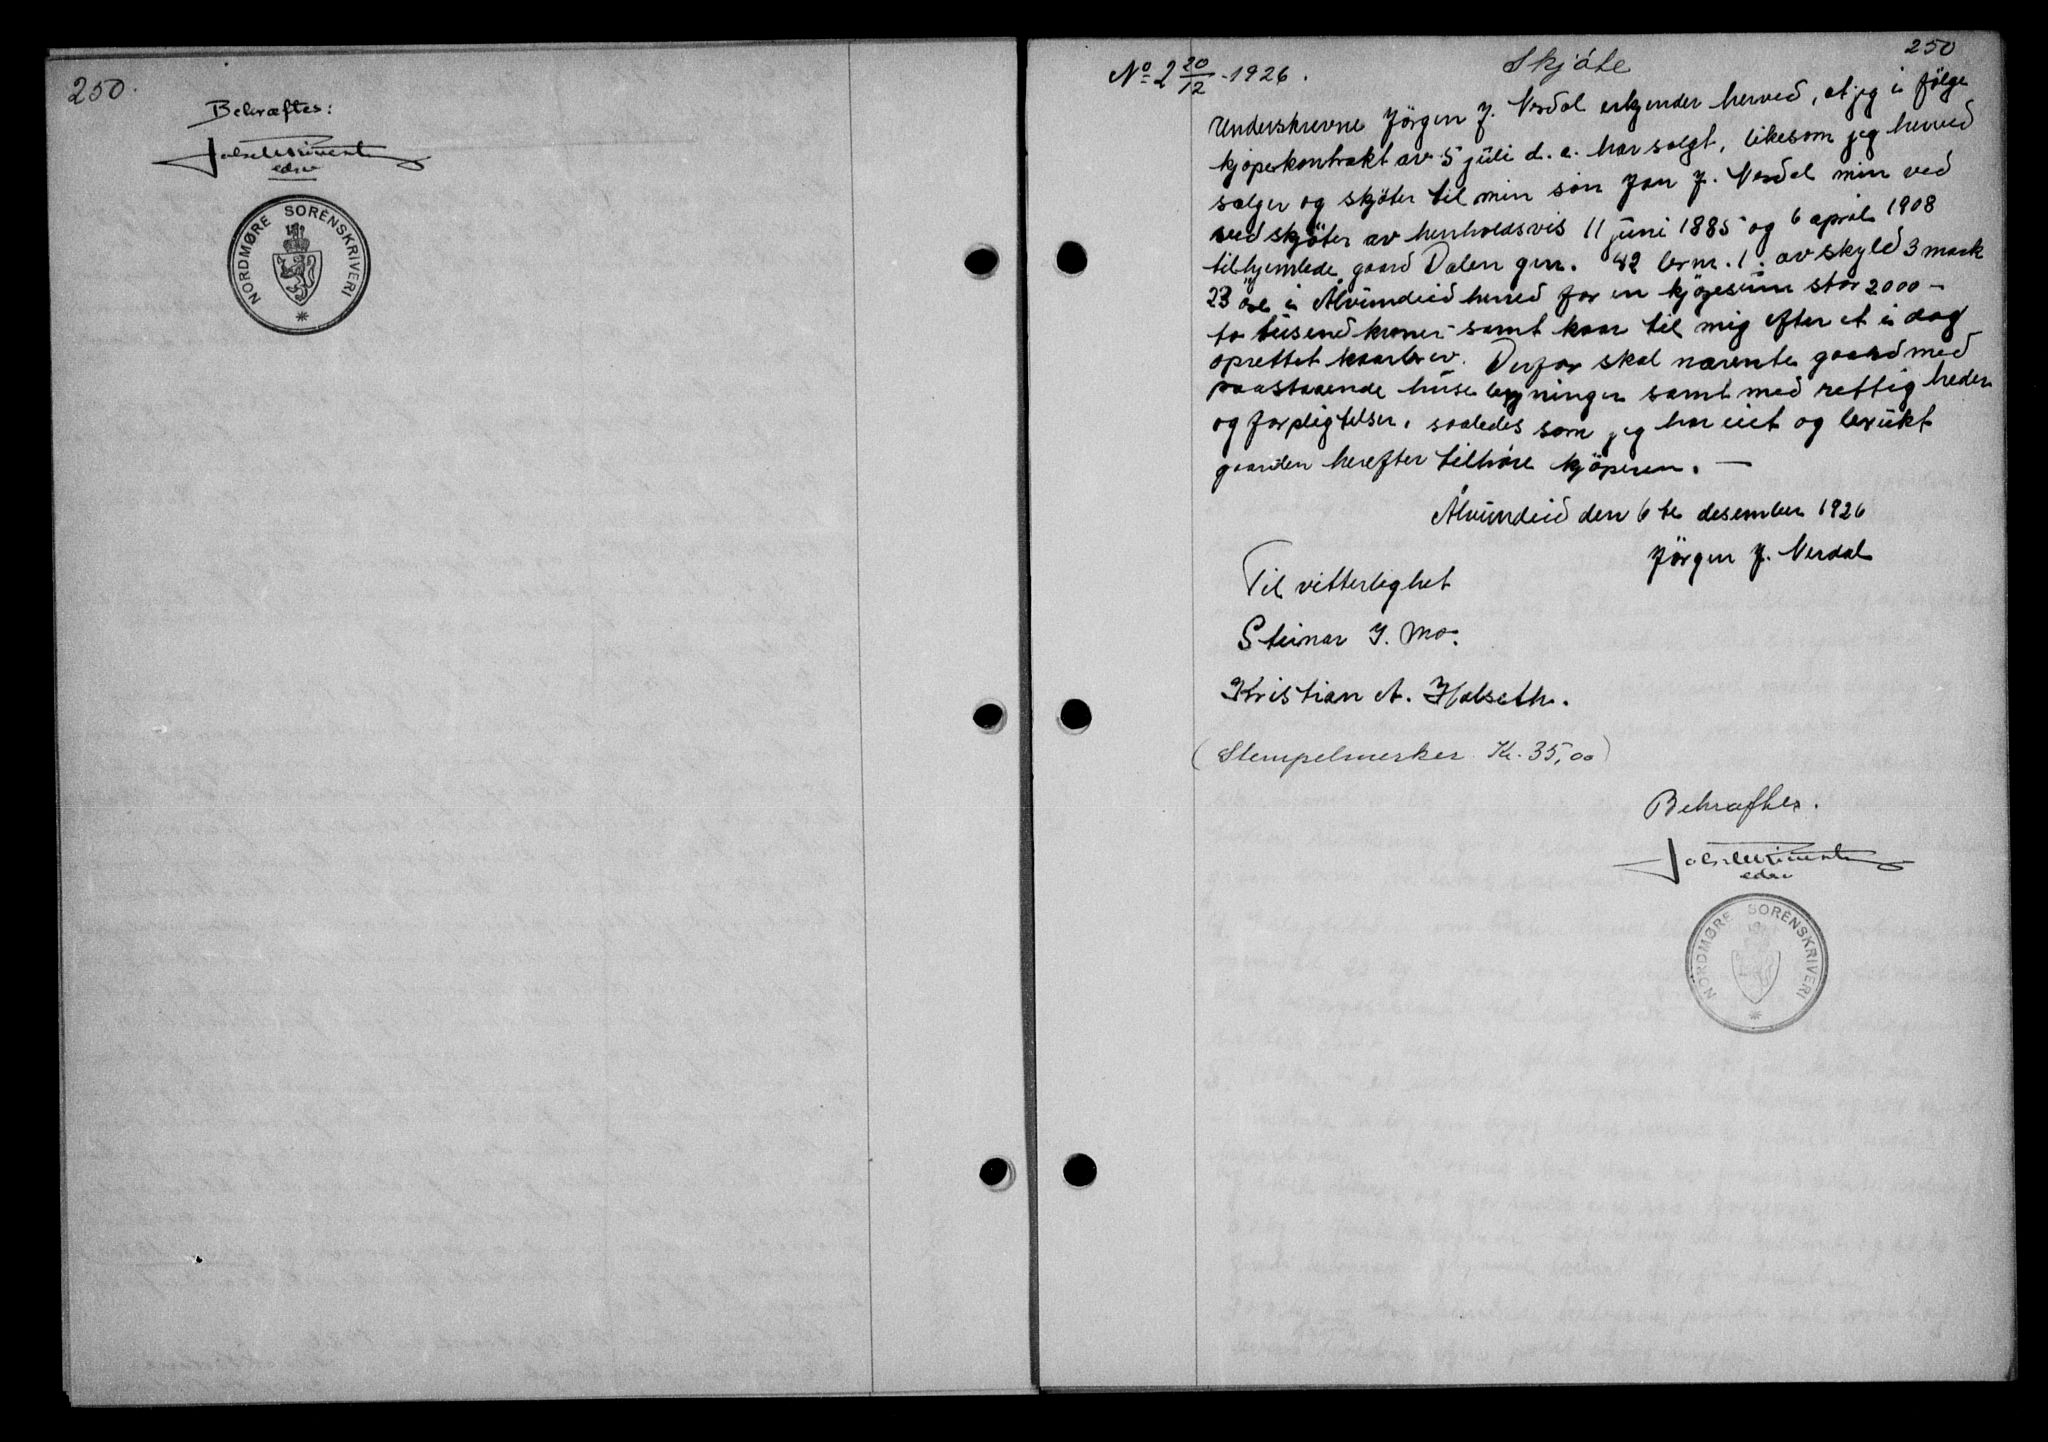 250.
Bekræftes:
edsv
NORDMØRE SORENSKRIVERI
250
No 2 20/12 - 1926.
Skjøte
Underskrevne Jörgen J. Nerdal erkjender herved, at jeg i følge
kjöpekontrakt av 5 juli d. a. har solgt, likesom jeg herved
sælger og skjöter til min sön Jon J. Nerdal min ved
ved skjöter av henholdsvis 11 juni 1885 og 6 april 1908
tilhjemlede gaard Dalen gnr. 42 brnr. 1. av skyld 3 mark
23 öre i Ålvundeid herred for en kjöpesum stor 2000 -
to tusend kroner - samt kaar til mig efter et i dag
oprettet kaarbrev. Derfor skal nævnte gaard med
paastaaende husebygninger samt med rettigheder
og forpligtelser, saaledes som jeg har eiet og brukt
gaarden herefter tilhöre kjöperen. -
Ålvundeid den 6te desember 1926
Jörgen J. Nerdal
Til vitterlighet
Steinar J. Mo.
Kristian A. Halseth.
(Stempelmerker Kr. 35,00)
Bekræftes.
edsv
NORDMØRE SORENSKRIVERI